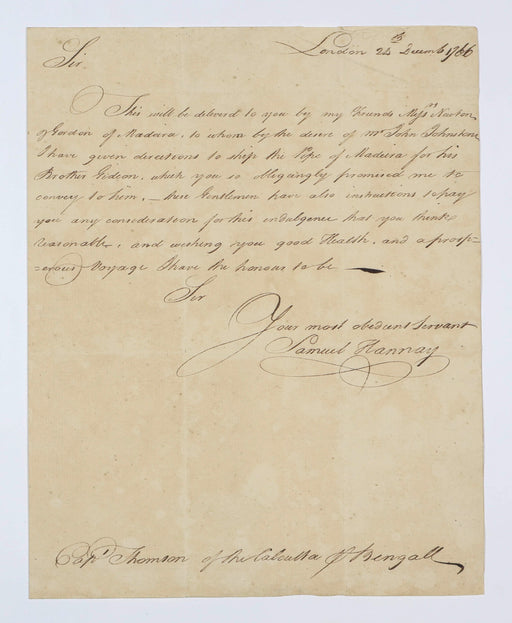 London 24th Decemb 1766
Sir
This will be deliverd to you by my Friends Messrs Newton
& Gordon of Madeira, to whom by the desire of Mr John Johnstone
I have given directions to ship the Pipe of Madeira for his
Brother Gideon, which you so obligingly promised me to
convey to him, – these Gentlemen have also instructions to pay
you any consideration for this indulgence that you think
reasonable, and wishing you good Health, and a prosp=
=erous Voyage I have the honour to be
Sir
Your most obedient Servant
Samuel Hannay
Capt Thomson of the Calcutta for Bengall